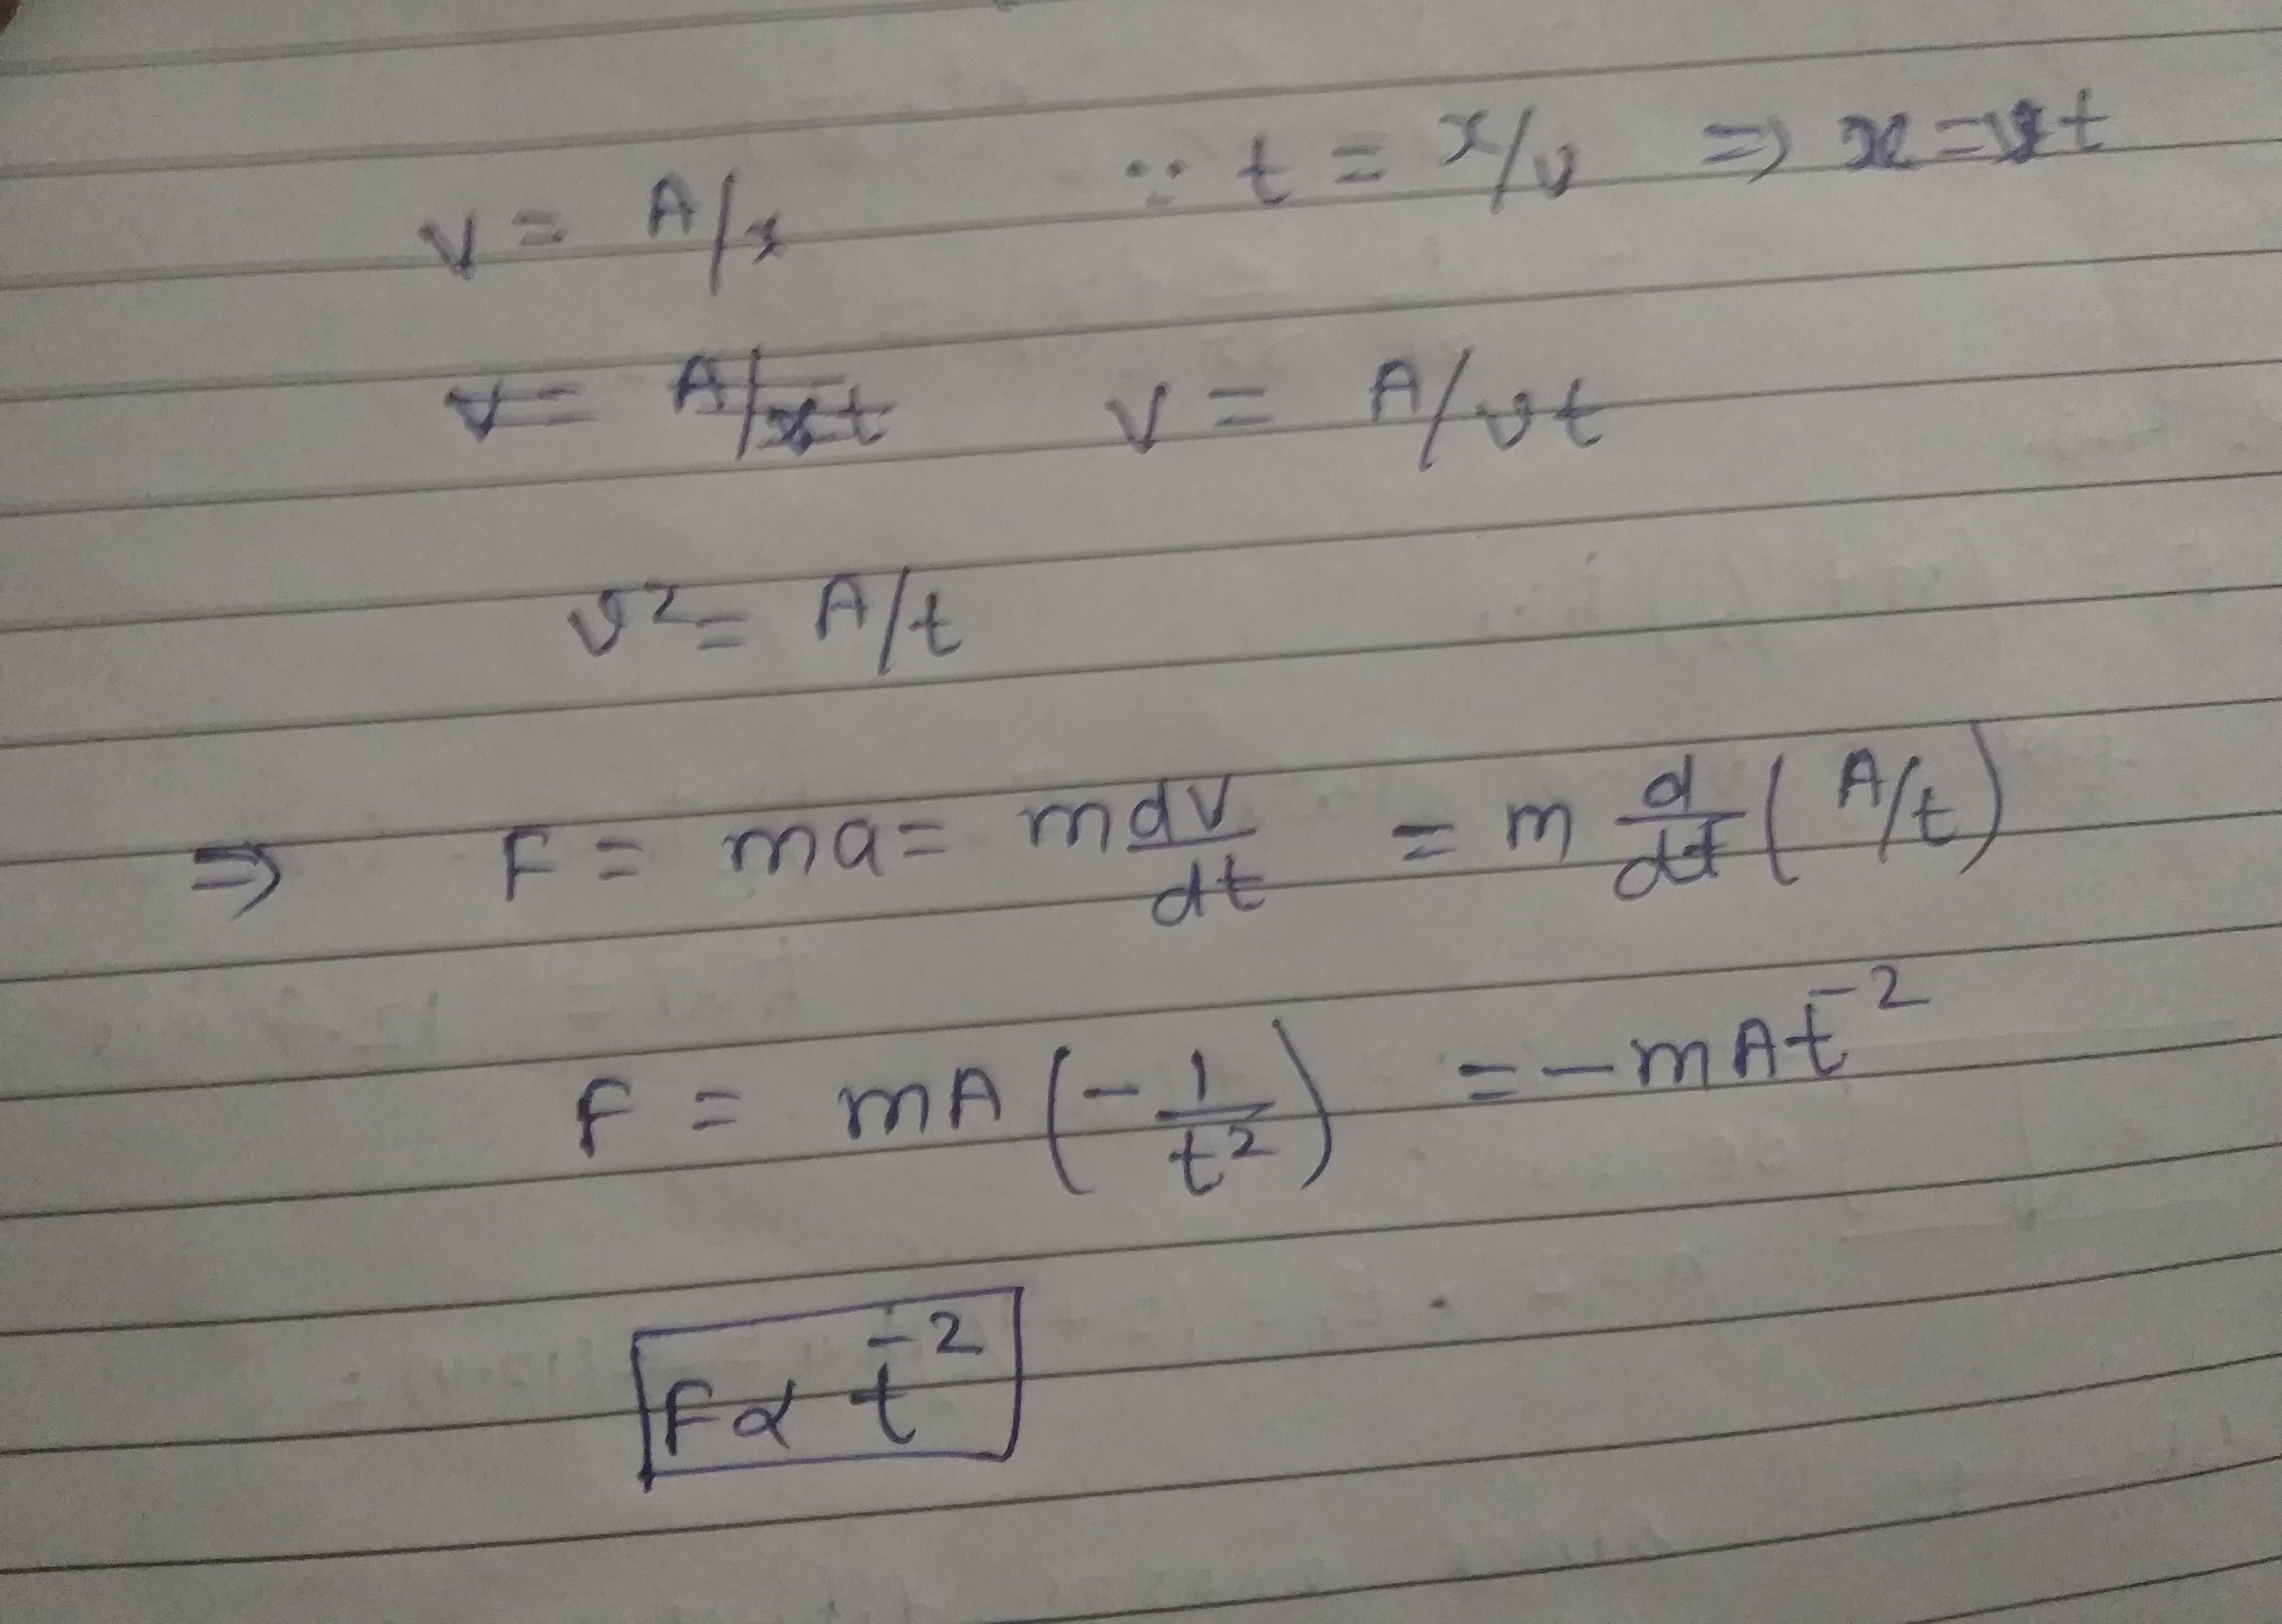 v = A/x ∵ t = x/v ⇒ x = vt
v = A/xt v = A/vt
v² = A/t
⇒ F = ma = m dv/dt = m d/dt (A/t)
F = mA (-1/t²) = -mAt⁻²
F ∝ t⁻²